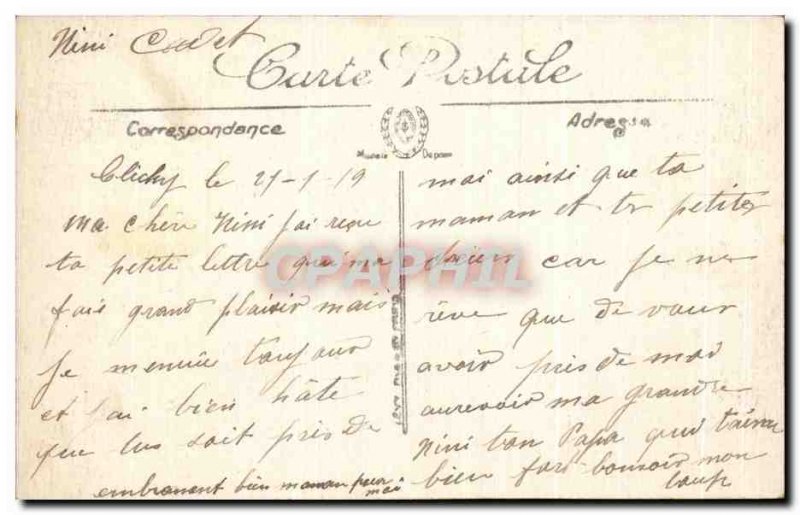 Nini Cadet
Carte Postale
Correspondance
Adresse
Clichy le 21-1-19
ma chère Nini j'ai reçu
ta petite lettre qui m'a
fais grand plaisir mais
je m'ennuie toujour
et j'ai bien hâte
que tu soit près de
moi ainsi que ta
maman et ta petites
soeur car je ne
rêve que de vour
avoir près de moi
aurevoir ma grande
Nini ton Papa qui t'aime
bien fort bonsoir mon
loup
embrassent bien maman pour
moi
CPAPHIL